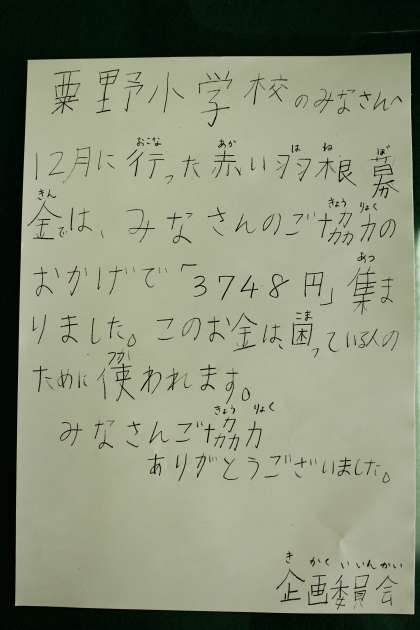 粟野小学校のみなさんへ
12月に行った赤い羽根募
金では、みなさんのご協力の
おかげで「3748円」集ま
りました。このお金は、困っている人の
ために使われます。
みなさんご協力
ありがとうございました。
企画委員会